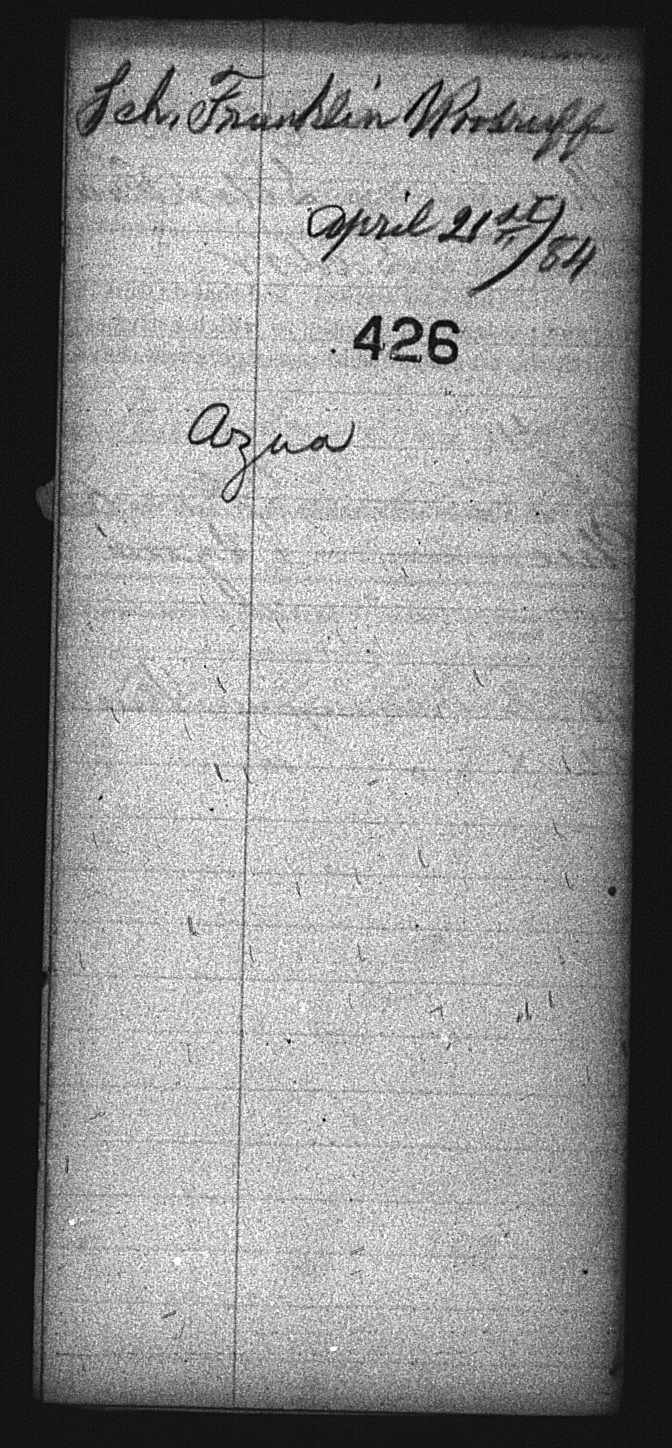 Sch. Franklin Woodruff
April 21st/84
426
Azua